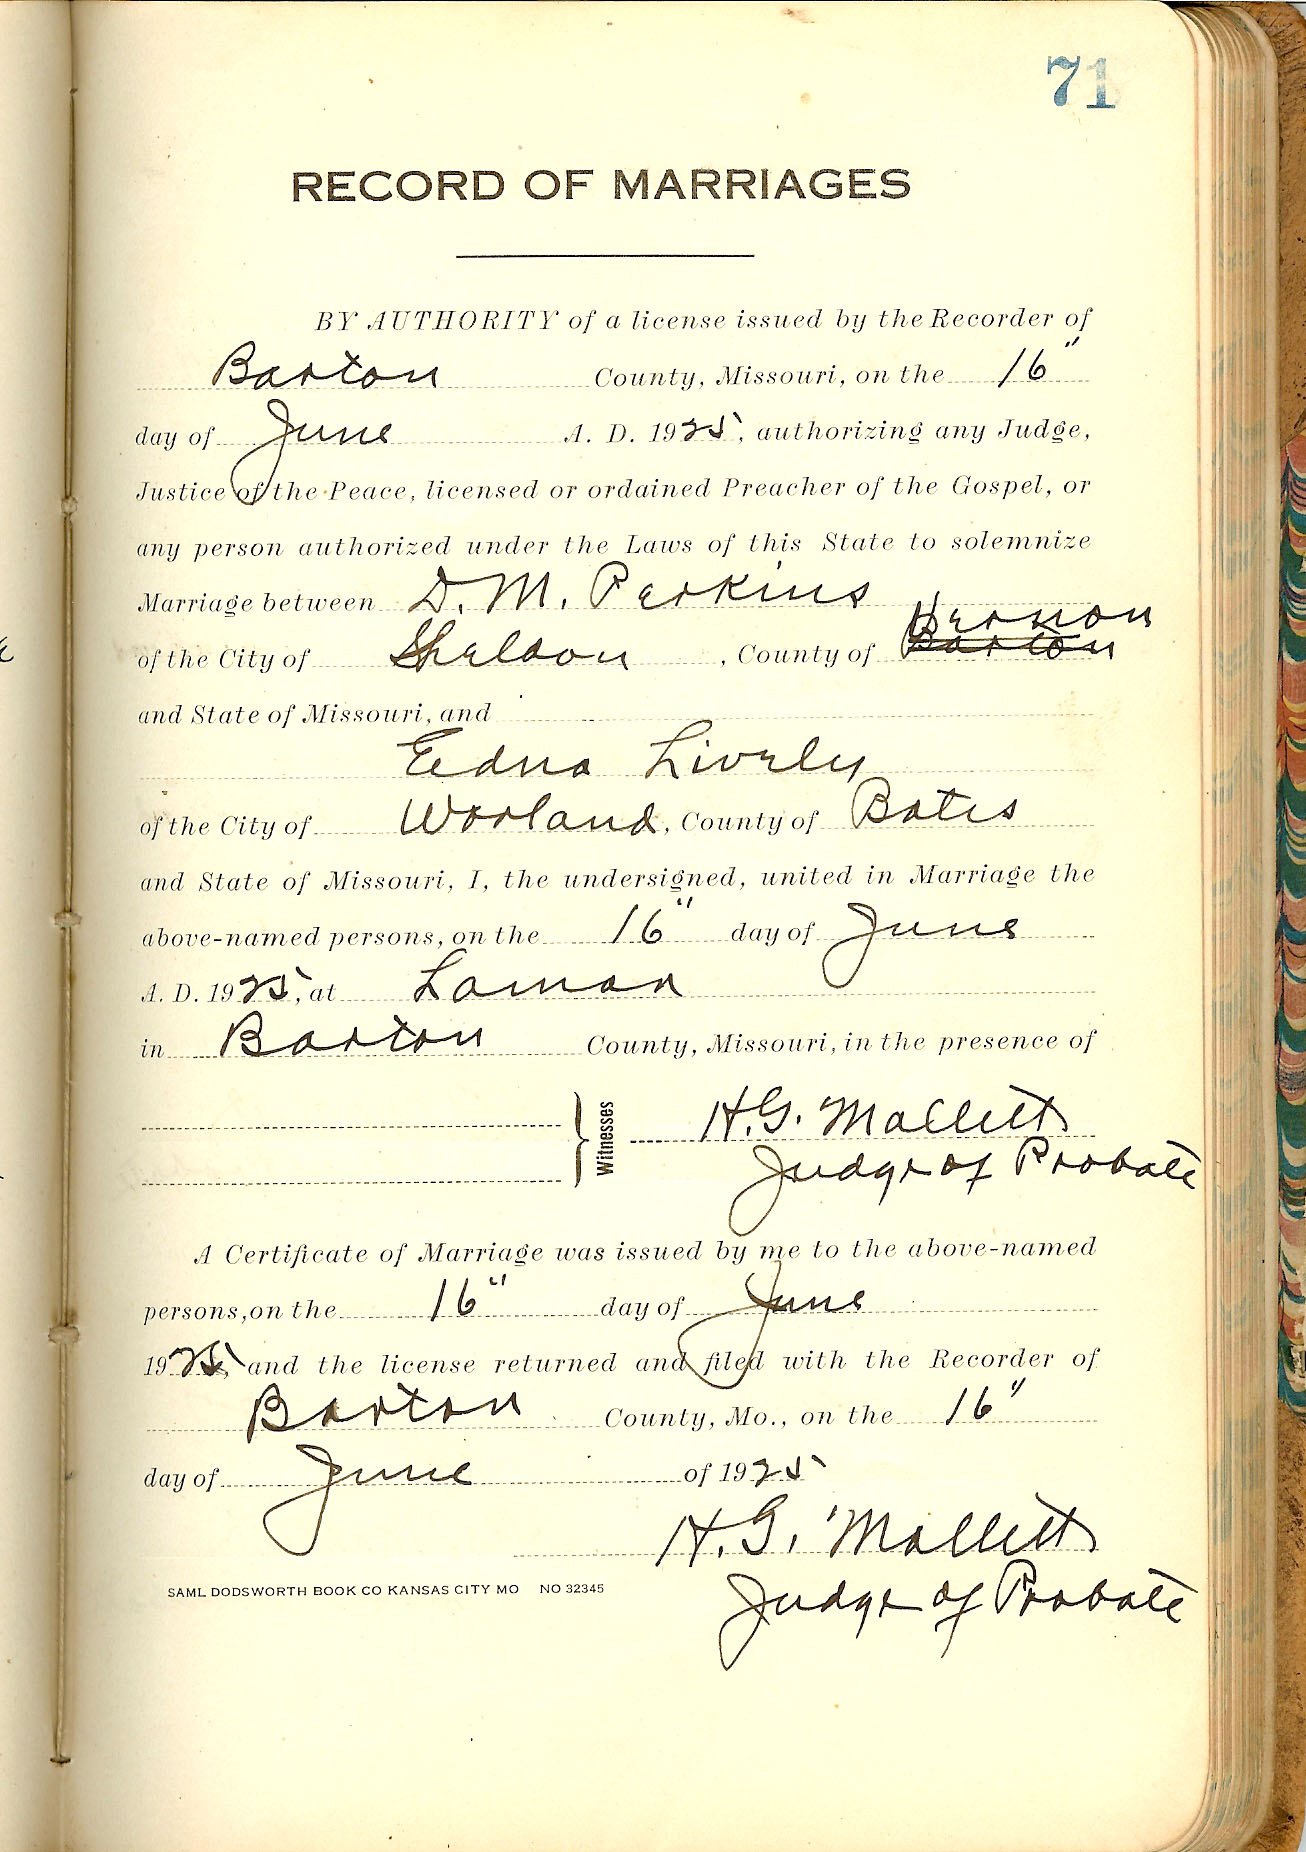 71
RECORD OF MARRIAGES
BY AUTHORITY of a license issued by the Recorder of
Barton County, Missouri, on the 16"
day of June A. D. 1925, authorizing any Judge,
Justice of the Peace, licensed or ordained Preacher of the Gospel, or
any person authorized under the Laws of this State to solemnize
Marriage between D. M. Perkins
Vernon
of the City of Sheldon, County of Barton
and State of Missouri, and
Edna Lively
of the City of Worland, County of Bates
and State of Missouri, I, the undersigned, united in Marriage the
above-named persons, on the 16" day of June
A. D. 1925, at Lamar
in Barton County, Missouri, in the presence of
Witnesses H. G. Mallett
Judge of Probate
A Certificate of Marriage was issued by me to the above-named
persons, on the 16" day of June
1925, and the license returned and filed with the Recorder of
Barton County, Mo., on the 16"
day of June of 1925
H. G. Mallett
SAML DODSWORTH BOOK CO KANSAS CITY MO NO 32345
Judge of Probate